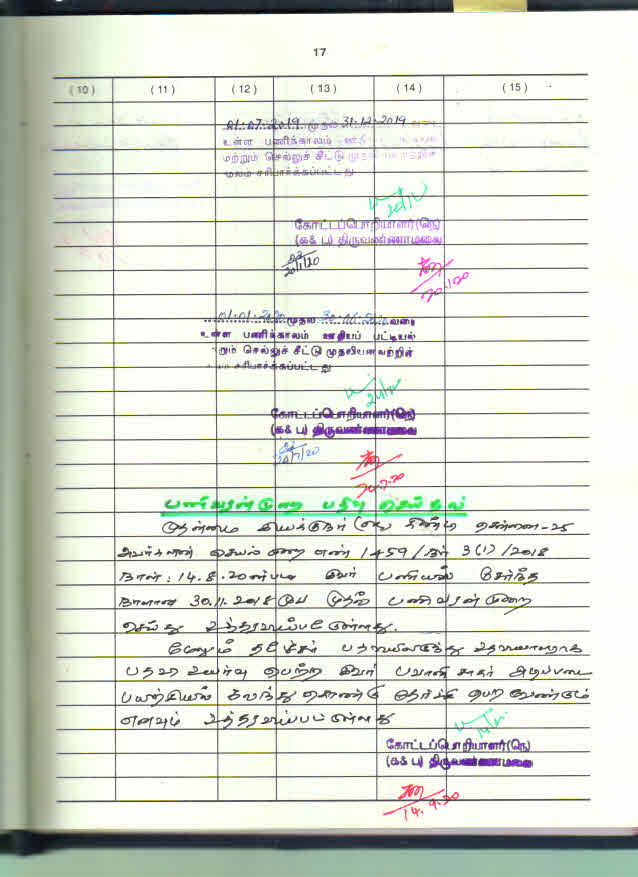 17
(10) (11) (12) (13) (14) (15)
01.07.2019 முதல் 31.12.2019 வரை
உள்ள பணிக்காலம்
மற்றும் செலுச் சீட்டு
மூலம் சரிபார்க்கப்பட்டது
20/1/20
கோட்டப்பொறியாளர்(நெ)
(க& ப) திருவண்ணாமலை
20/1/20
20.1.20
01.01.2020 முதல் 30.06.2020 வரை
உள்ள பணிக்காலம் ஊதியப் பட்டியல்
றும் செலுச் சீட்டு முதலியனவற்றின்
சரிபார்க்கப்பட்டது
கோட்டப்பொறியாளர்(நெ)
(க& ப) திருவண்ணாமலை
20/7/20
20.7.20
பணிவரன்முறை பதிவு செய்தல்
முதன்மை இயக்குநர் கிண்டி சென்னை-25
அவர்களின் செயல் முறை எண் 1459/ 3(1)/2018
நாள்: 14.8.20ன்படி இவர் பணியில் சேர்ந்த
நாளான 30.11.2018 முதல் பணிவரன்முறை
செய்து உத்தரவிடப்பட்டுள்ளது.
மேலும்
பதவி உயர்வு பெற்ற இவர் பவானி சாகர் அடிப்படை
பயிற்சியில் கலந்து கொண்டு தேர்ச்சி பெற வேண்டும்
எனவும் உத்தரவிடப்பட்டுள்ளது
கோட்டப்பொறியாளர்(நெ)
(க& ப) திருவண்ணாமலை
14.9.20